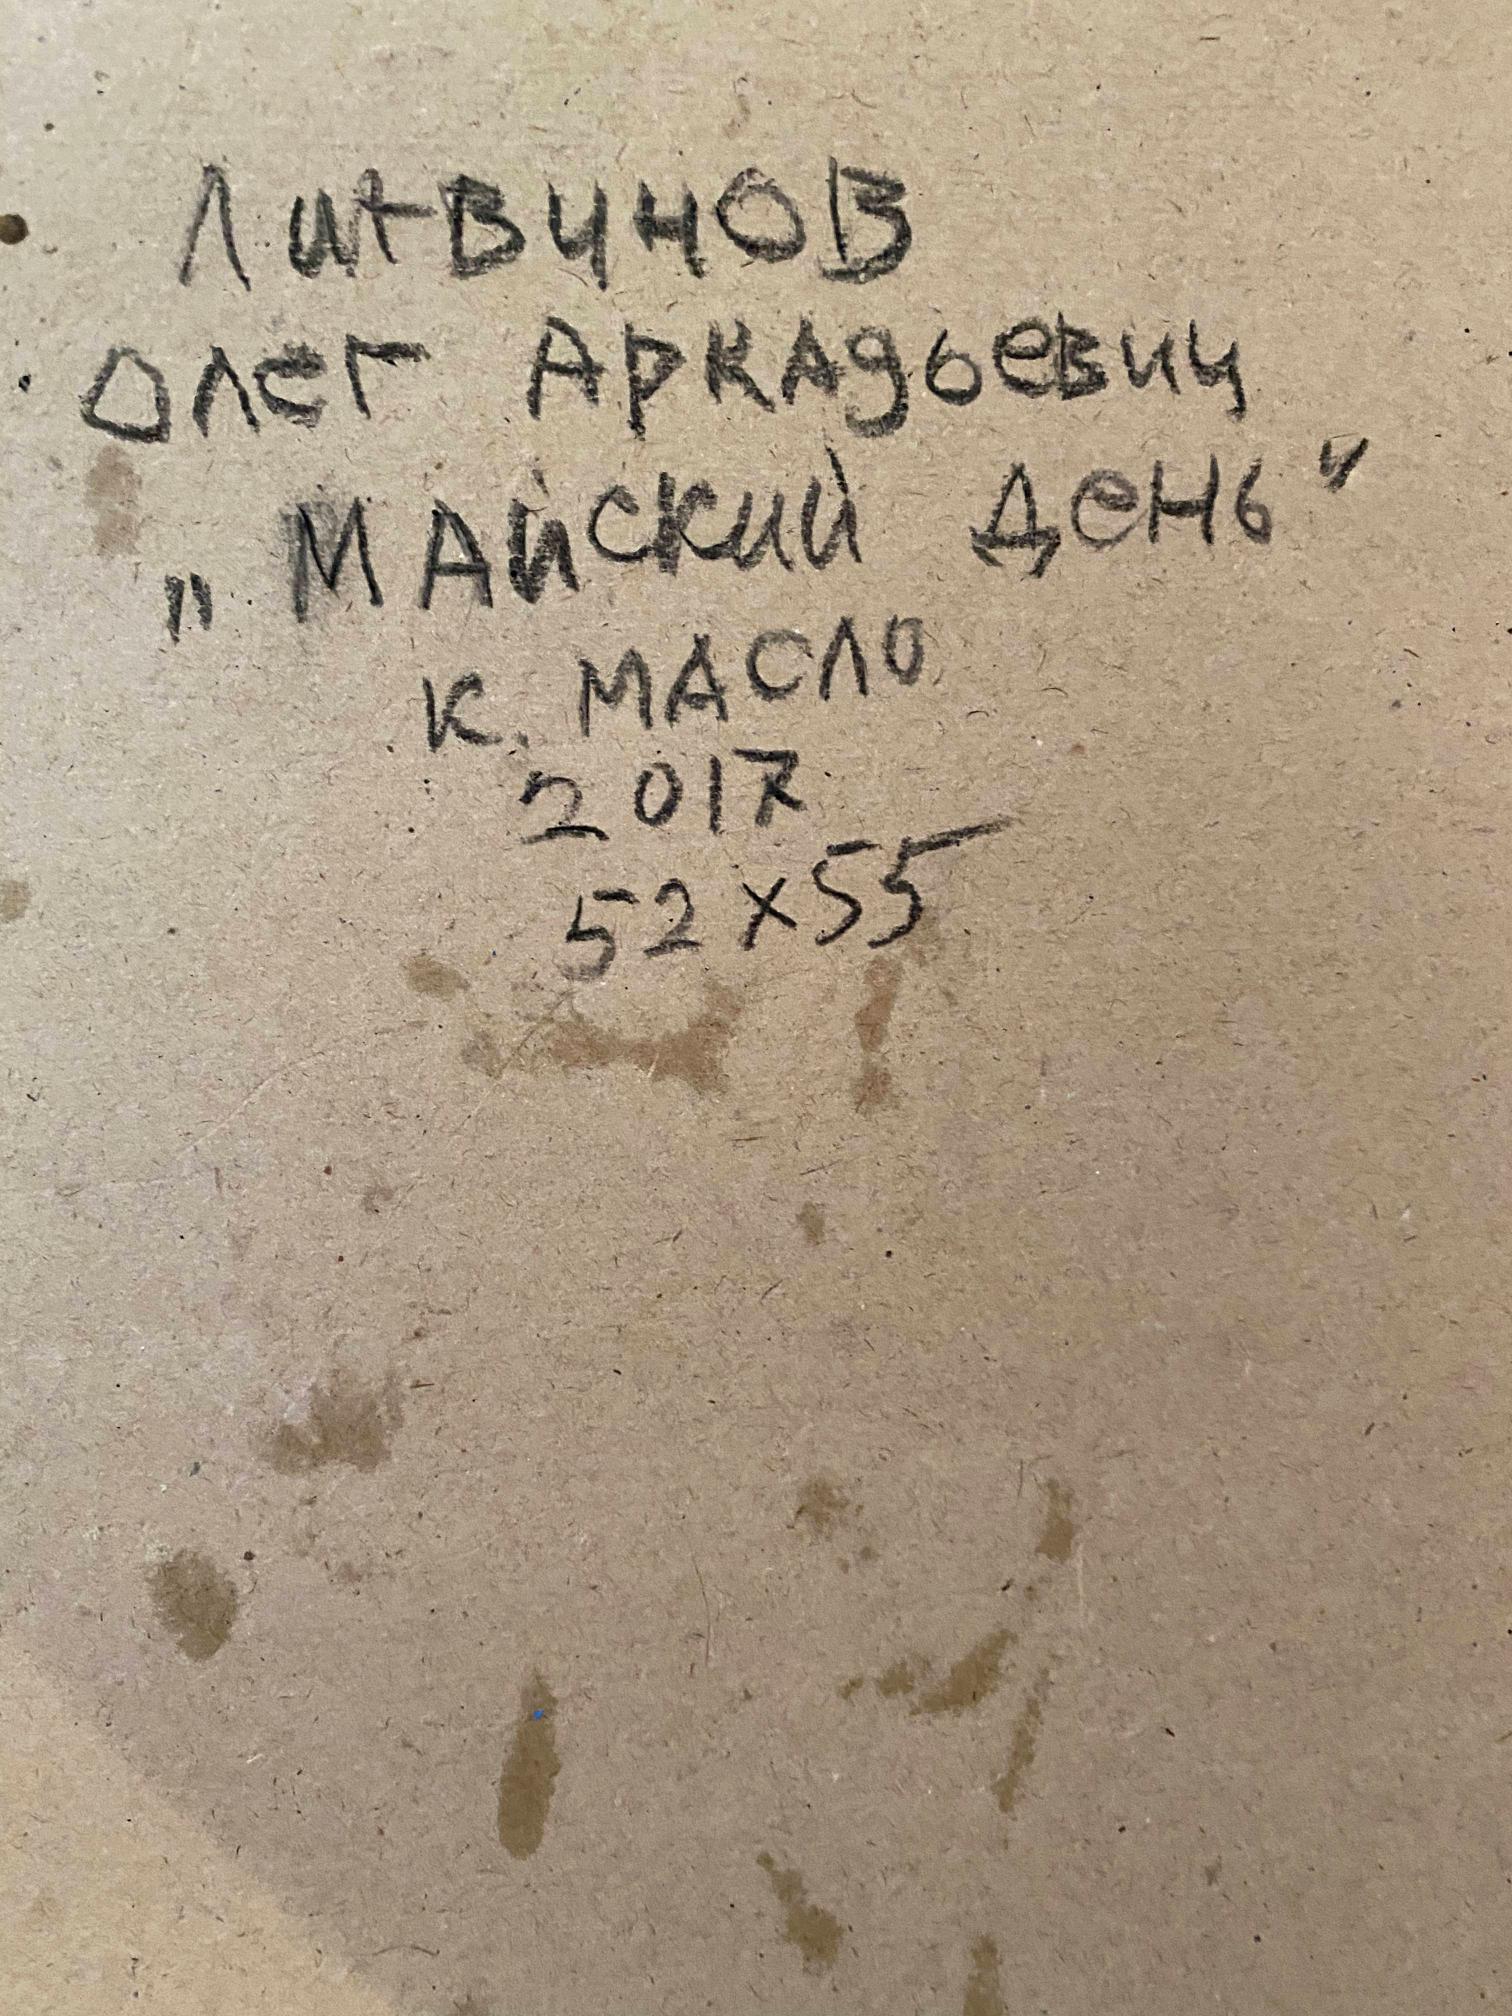 Литвинов
Олег Аркадьевич
„Майский день"
к. масло
2017
52x55